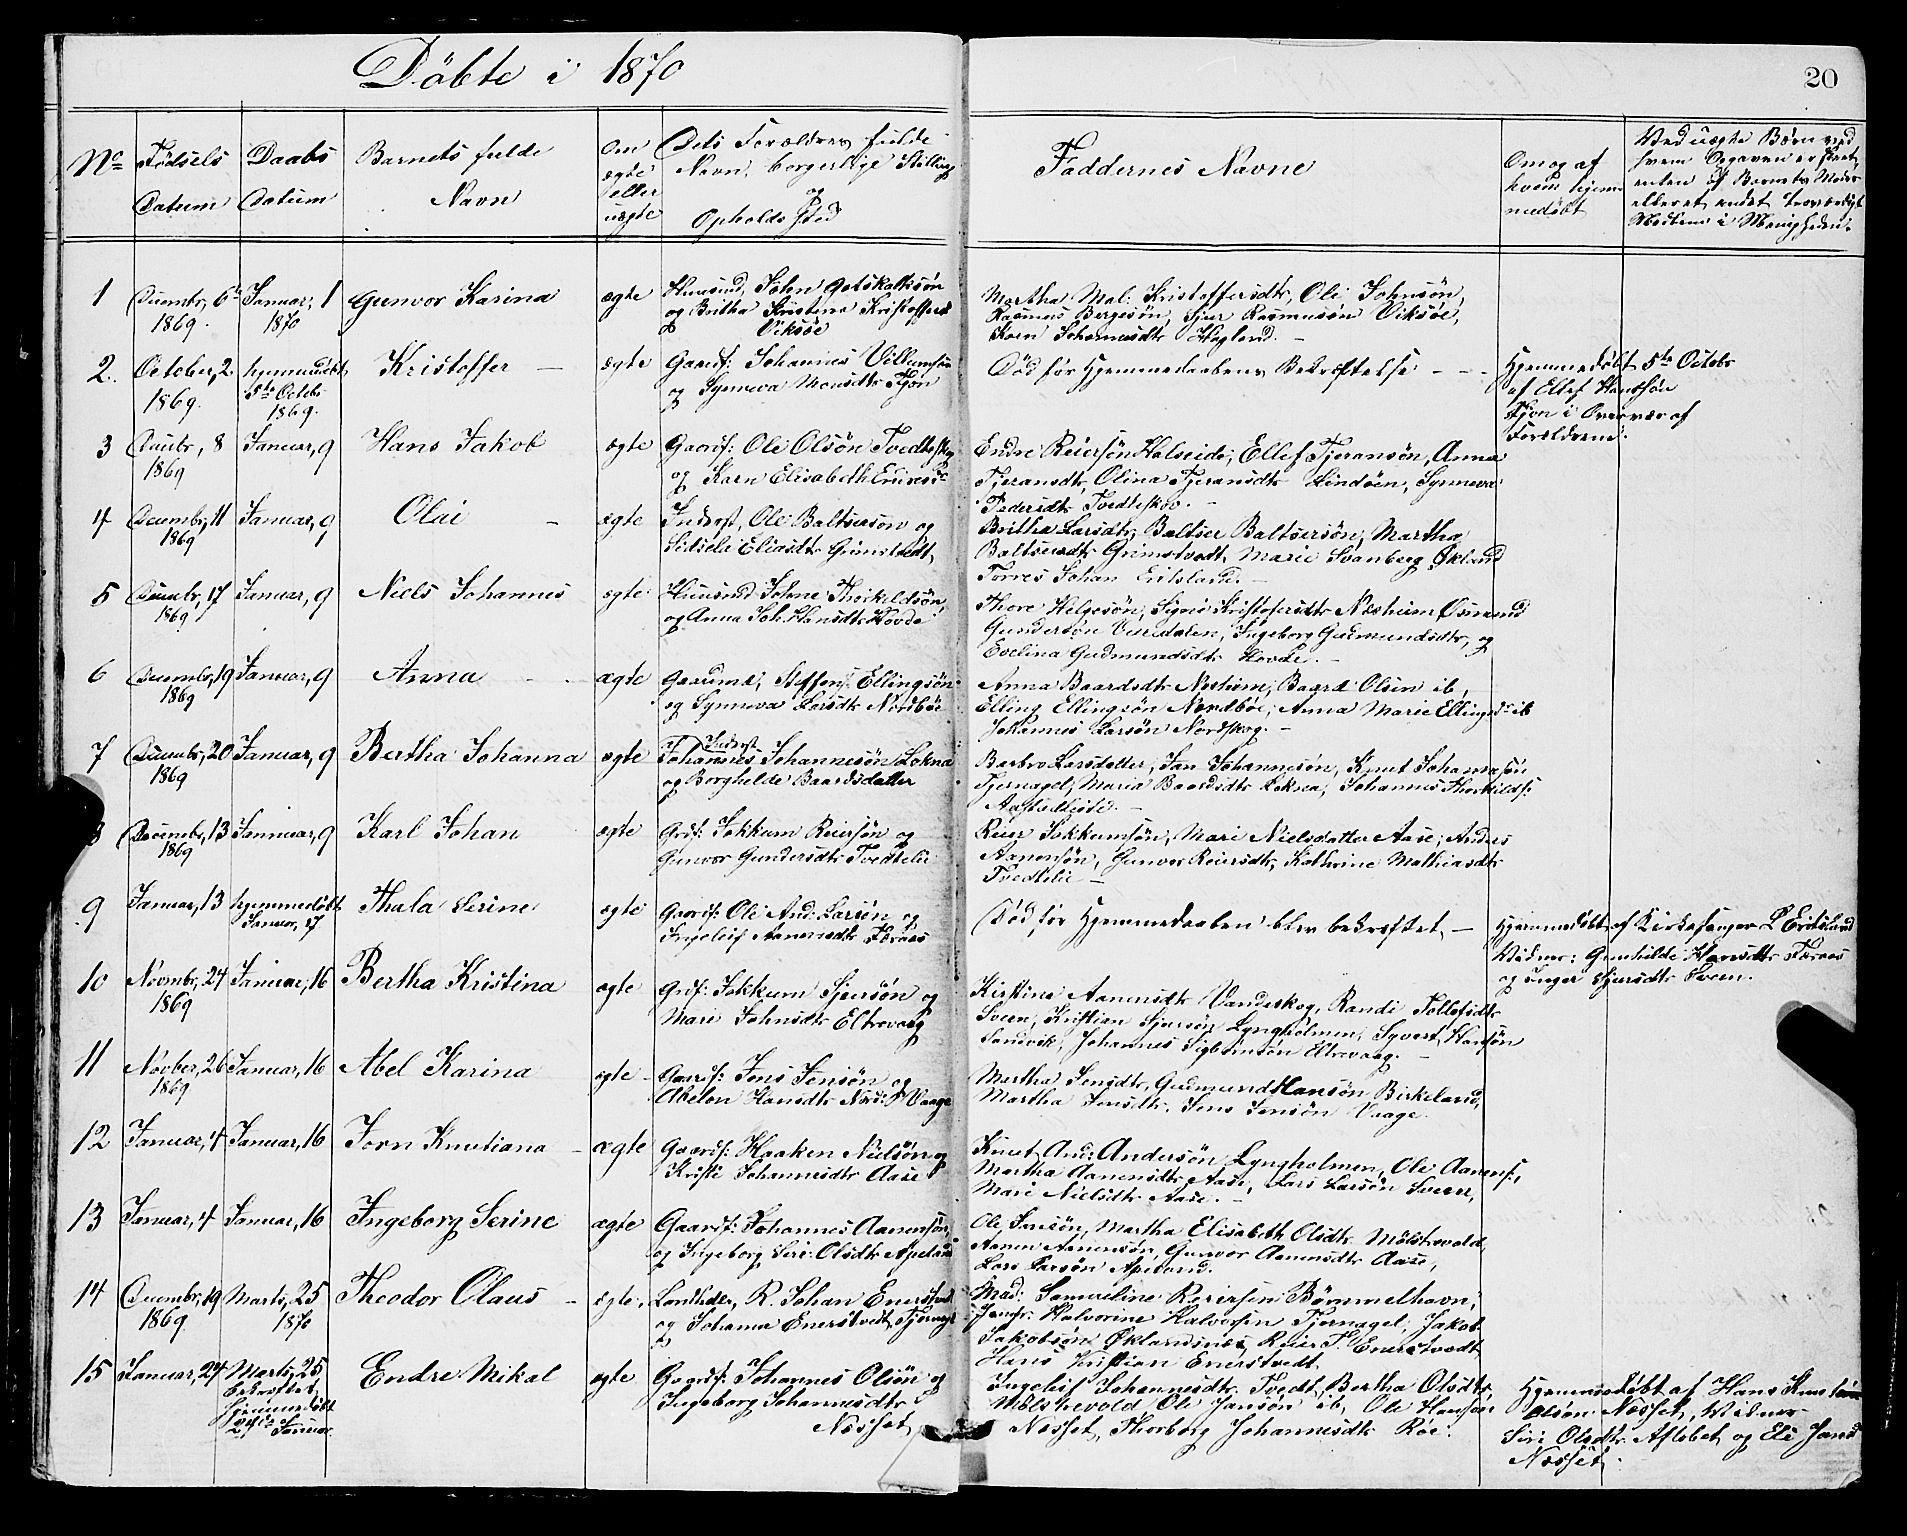 Döbte i 1870
20
No Fødsels Datum
Daabs Datum
Barnets fulde Navn
Om ægte eller uægte
Dets Forældres fulde Navn, borgerlige Stilling og Opholds Sted
Faddernes Navne
Om og af hvem hjemmedøbt
Ved uægte Børn ved hvem Opgaven er skeet, enten af Barnets Moder eller et andet troværdigt Medlem i Menigheden.
1 Decembr, 6te 1869. Januar, 1 1870 Gunvor Karina ægte
Huusmd. John Gotskalksön
og Britha Kristena Kristoffersd
Viksöe
Martha Mal: Kristoffersdtr, Ole Johnsön,
Rasmus Bergesön, Sjur Rasmusön Viksöe,
Karn Johannesdtr Hogland. –
2. October, 2 1869. hjemmedöbt 5te Octobr 1869. Kristoffer – ægte
Gaardf: Johannes Villumsön
og Synneva Monsdtr Fjon
Död før Hjemmedaabens Bekræftelse. – – –
Hjemmedöbt 5te Octobr
af Ellef Hanssön
Fjon i Overvær af
Forældrene.
3 Decbr, 8 1869 Januar, 9 Hans Jakob ægte
Gaardf: Ole Olsön Tvedteskog
og Karn Elisabeth
Endre Reiersön Halseide, Ellef Tjeransön, Anna
Tjeransdtr, Olina Tjeransdtr Lindöen, Synneva
Pedersdtr Tvedteskov. –
4 Decembr, 11 1869 Januar, 9 Olai – ægte
Inderst, Ole Baltsersön og
Sidsele Eliasdtr Grimstvedt,
Britha Larsdtr, Baltser Baltsersön, Martha
Baltsersdtr Grimstvedt, Marie Svanberg Økland
Torres Johan Eritsland. –
5 Decembr, 17 1869 Januar, 9 Niels Johannes ægte
Huusmd Johne Thorkildsön,
og Anna Joh. Hansdtr Hovde
Thore Helgesön, Signe Kristofersdtr Næsheim, Osmund
Gundersön Vuredalen, Ingeborg Gudmundsdtr, og
Evelina Gudmundsdtr Hovde. –
6 Decembr, 19 1869 Januar, 9 Anna – ægte
Gaarmd, Steffen Ellingsön
og Synneva Larsdtr Nordböe
Anna Baardsdtr Næsheim, Baard Olsen ib,
Elling Ellingsön Nordböe, Anna Marie Ellingsd: ib
Johannes Larsön Nordskog. –
7 Decembr, 20 1869 Januar, 9 Bertha Johanna ægte
Inderst
Johannes Johannesön Lokna
og Borghilde Baardsdatter
Barbro Larsdatter, Jan Johannesön, Knut Johannesön
Tjernagel, Maria Baardsdtr Loksna, Johannes Thorkildsf:
8 Decembr, 13 1869 Januar, 9 Karl Johan ægte
Grdf: Jokkum Reiersön og
Gunvor Gundersdtr Tvedtelie
Reier Jokkumsön, Mari Nielsdatter Aase, Andres
Aanensön, Gunvor Reiersdtr, Kathrine Mathiasdtr
Tvedtelie –
9 Januar, 13 hjemmedöbt Januar, 17 Thala Serine ægte
Gaardf: Ole And: Larsön og
Ingeleif Aanensdtr Færaas
Död, før Hjemmedaaben blev bekræftet, –
Hjemmedöbt af Kirkesanger L Eritsland
Vidner: Gunhilde Hansdtr Færaas
og Inger Sjursdtr Sveen.
10 Novmbr, 24 1869 Januar, 16 Bertha Kristina ægte
Grdf: Jokkum Sjursön og
Mari Johnsdtr Eltrevaag
Kirstine Aanensdtr Vandeskog, Randi Tollefsdtr
Sveen, Kristian Sjursön Lyngholmen, Syvert Hansön
Sandvik, Johannes Sigbiönsön Eltrevaag. –
11 Novber, 26 1869 Januar, 16 Abel Karina ægte
Gaardf: Jens Jensön og
Abelon Hansdtr Nord: Vaage
Martha Jensdtr, Gudmund Hansön Birkeland,
Martha Jensdtr, Jens Jensön Vaage.
12 Januar, 4 Januar, 16 Jorn Knutiana – ægte
Gaardf: Haaken Nielsön og
Kristi Johannesdtr Aase
Knut And: Andersön Lyngholmen, Ole Aanensf:,
Martha Aanensdtr Aase, Lars Larsön Sveen,
Mari Nielsdtr Aase. –
13 Januar, 4 Januar, 16 Ingeborg Serine ægte
Gaardf: Johannes Aanensön
og Ingeborg Siri Olsdtr Apeland
Ole Jansön, Martha Elisabeth Olsdtr Mölstrevold,
Aanen Aanensön, Gunvor Aanensdtr Aase,
Lars Larsön Apeland.
14 Decembr, 19 1869 Marts, 25 1870 Theodor Olaus – ægte.
Landheder, R. Johan Enerstvedt
og Johanna Enerstvedt, Tjernagel
Mad: Samueline Reiersen Bömmelhavn,
Jomfr: Halvorine Halvorsen Tjernagel, Jakob
Jakobsön Øklandsnes, Reier T. Enerstvedt,
Hans Kristian Enerstvedt
15 Januar, 24 Marts, 25 bekræftet, Hjemmedöbt Januar Endre Mikal ægte
Gaardf: Johannes Olsön og
Ingeborg Johannesdtr
Næsset
Ingeleif Johannesdtr Tvedt, Bertha Olsdtr,
Mölstrevold, Ole Jansön ib, Ole Hansön
Næsset, Thorborg Johannesdtr Röe.
Hjemmedöbt af Hans
Olsön Næsset, Vidner
Siri Olsdtr Aflöbet og Eli Jansd
Næsset.